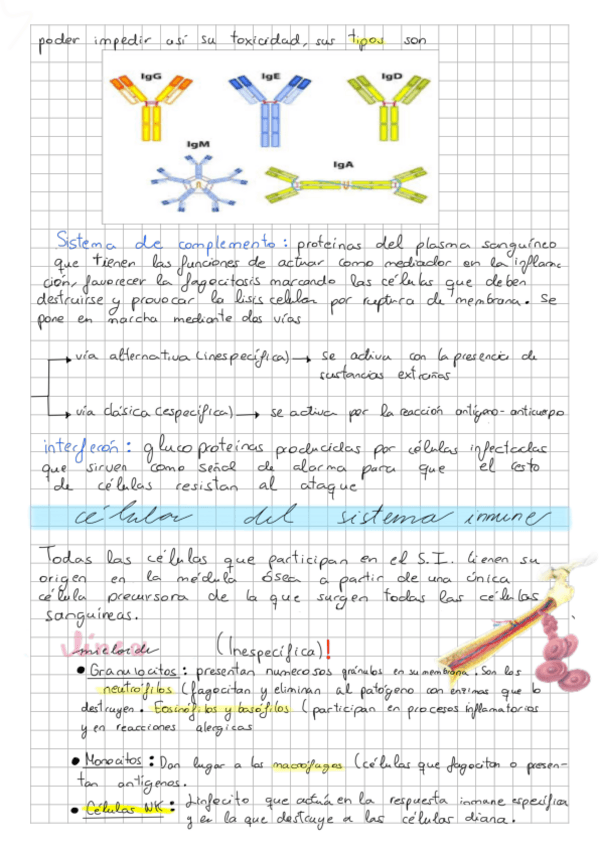 poder impedir así su toxicidad, sus tipos son
IgG IgE IgD
IgM
IgA
Sistema de complemento: proteinas del plasma sanguíneo
que tienen las funciones de actuar como mediador en la inflama-
ción, favorecer la fagocitosis marcando las células que deben
destruirse y provocar la lisis celular por ruptura de membrana. Se
pone en marcha mediante dos vías
vía alternativa (inespecífica) → se activa con la presencia de
sustancias extrañas
vía clásica (específica) → se activa por la reacción antígeno-anticuerpo
interferón: glucoproteinas producidas por células infectadas
que sirven como señal de alarma para que el resto
de células resistan al ataque
células del sistema inmune
Todas las células que participan en el S.I. tienen su
origen en la médula ósea a partir de una única
célula precursora de la que surgen todas las células
sanguíneas.
Línea mieloide (Inespecífica)!
• Granulocitos: presentan numerosos gránulos en su membrana. Son los
neutrófilos (fagocitan y eliminan al patógeno con enzimas que lo
destruyen. Eosinófilos y basófilos (participan en procesos inflamatorios
y en reacciones alergicas
• Monocitos: Dan lugar a los macrófagos (células que fagocitan o presen-
tan antígenos.
• Células NK: Linfocito que actúa en la respuesta inmune específica
y en la que destruye a las células diana.